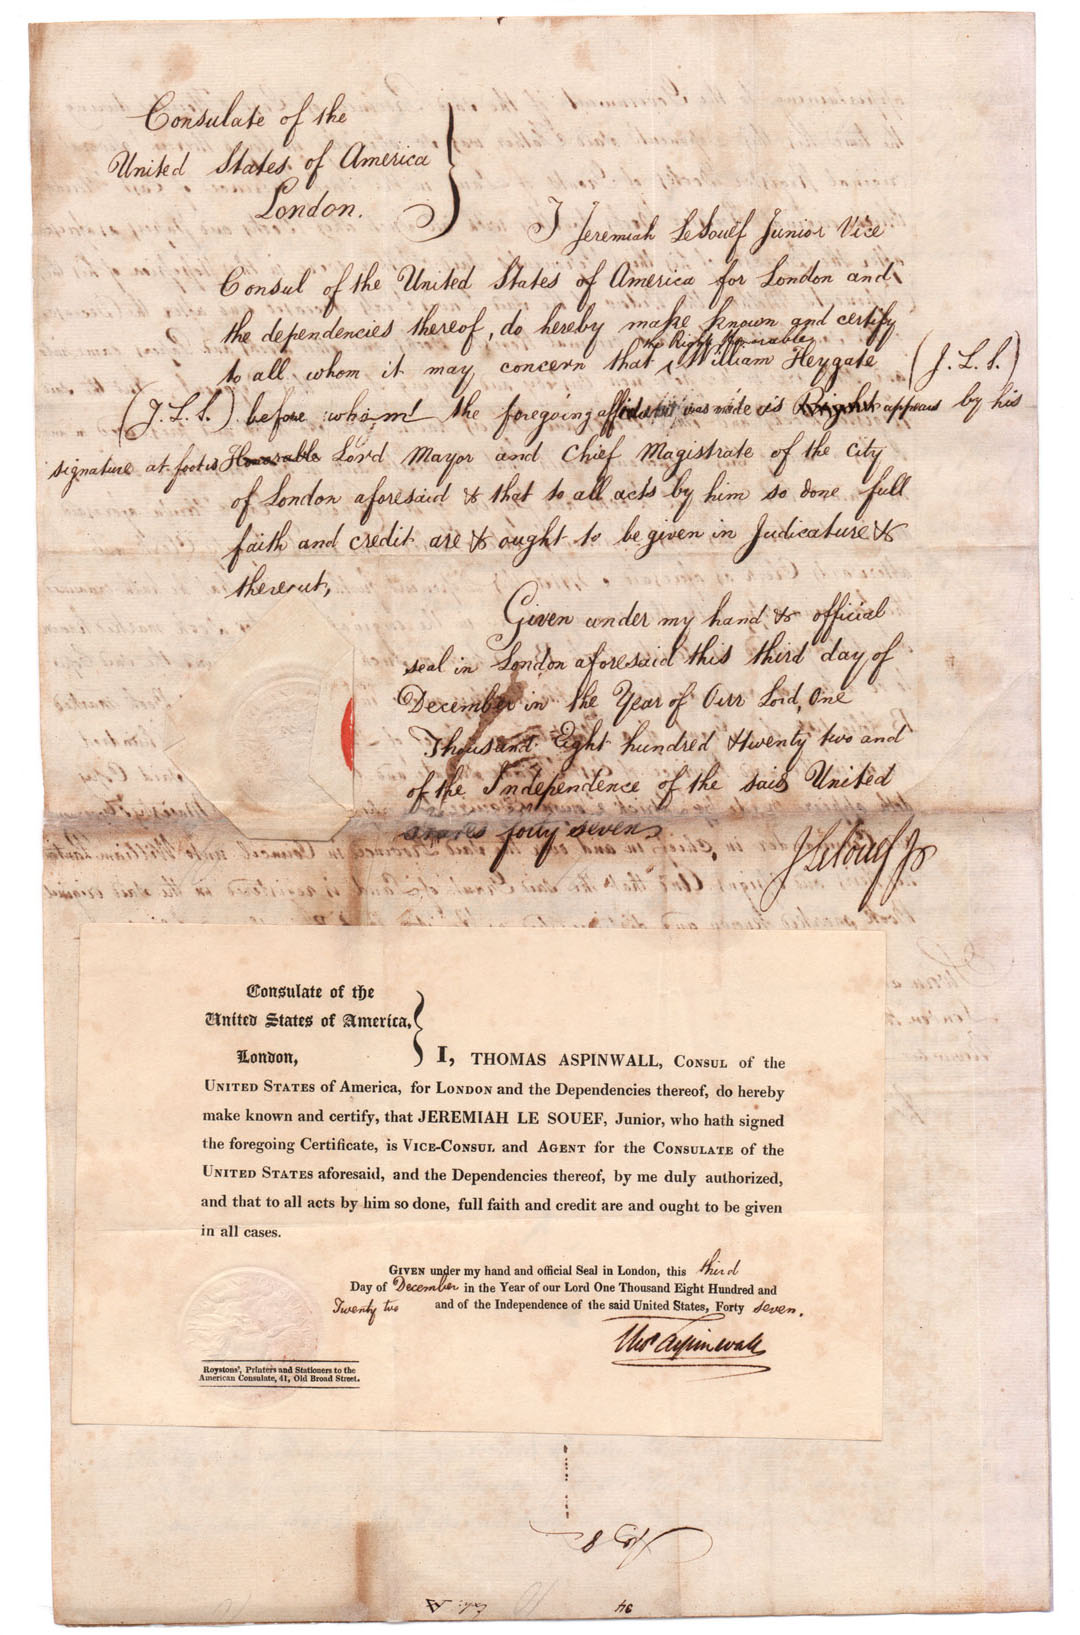 Consulate of the
United States of America
London.
I Jeremiah LeSouëf Junior Vice
Consul of the United States of America for London and
the dependencies thereof, do hereby make known and certify
the Right Honorable
to all whom it may concern that William Heygate (J. L. S.)
(J. L. S.) before whom the foregoing affidavit was made as Right appears by his
signature at foot is Honorable Lord Mayor and Chief Magistrate of the City
of London aforesaid & that to all acts by him so done full
faith and credit are & ought to be given in Judicature &
thereout,
Given under my hand & official
seal in London aforesaid this third day of
December in the Year of Our Lord, One
Thousand Eight hundred & twenty two and
of the Independence of the said United
States forty seven
J LeSouëf Jr
Consulate of the
United States of America,
London,
I, THOMAS ASPINWALL, CONSUL of the
UNITED STATES of America, for LONDON and the Dependencies thereof, do hereby
make known and certify, that JEREMIAH LE SOUEF, Junior, who hath signed
the foregoing Certificate, is VICE-CONSUL and AGENT for the CONSULATE of the
UNITED STATES aforesaid, and the Dependencies thereof, by me duly authorized,
and that to all acts by him so done, full faith and credit are and ought to be given
in all cases.
GIVEN under my hand and official Seal in London, this third
Day of December in the Year of our Lord One Thousand Eight Hundred and
Twenty two and of the Independence of the said United States, Forty seven.
Thos Aspinwall
Roystons', Printers and Stationers to the
American Consulate, 41, Old Broad Street.
No 8
34